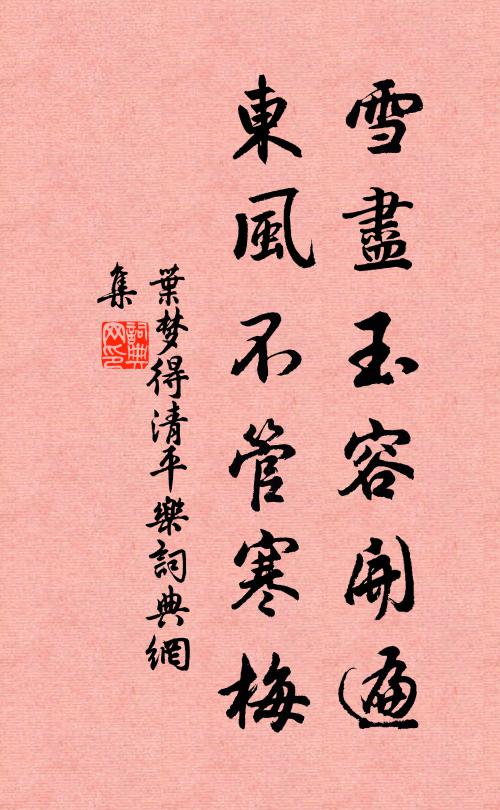 雪盡玉容開遍
東風不管寒梅
葉梦得清平樂詞典網
集
詞典网印